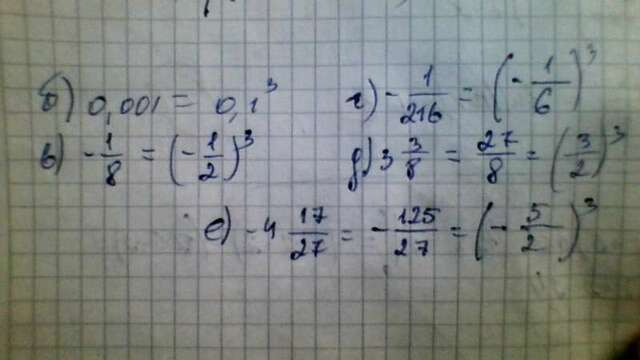 б) 0,001 = 0,1³ г) -1/216 = (-1/6)³
в) -1/8 = (-1/2)³ д) 3 3/8 = 27/8 = (3/2)³
е) -4 17/27 = -125/27 = (-5/2)³